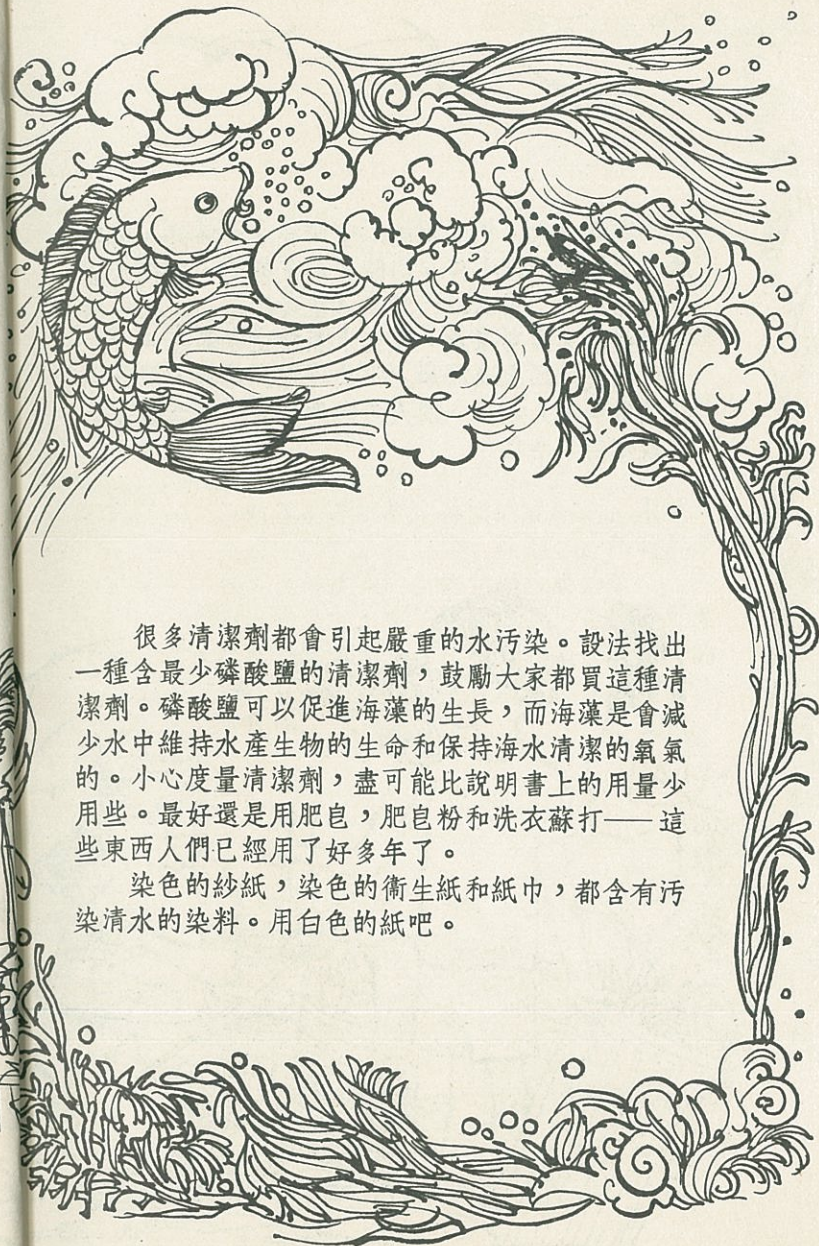 很多清潔劑都會引起嚴重的水污染。設法找出
一種含最少磷酸鹽的清潔劑，鼓勵大家都買這種清
潔劑。磷酸鹽可以促進海藻的生長，而海藻是會減
少水中維持水產生物的生命和保持海水清潔的氧氣
的。小心度量清潔劑，盡可能比說明書上的用量少
用些。最好還是用肥皂，肥皂粉和洗衣蘇打——這
些東西人們已經用了好多年了。
染色的紗紙，染色的衞生紙和紙巾，都含有污
染清水的染料。用白色的紙吧。